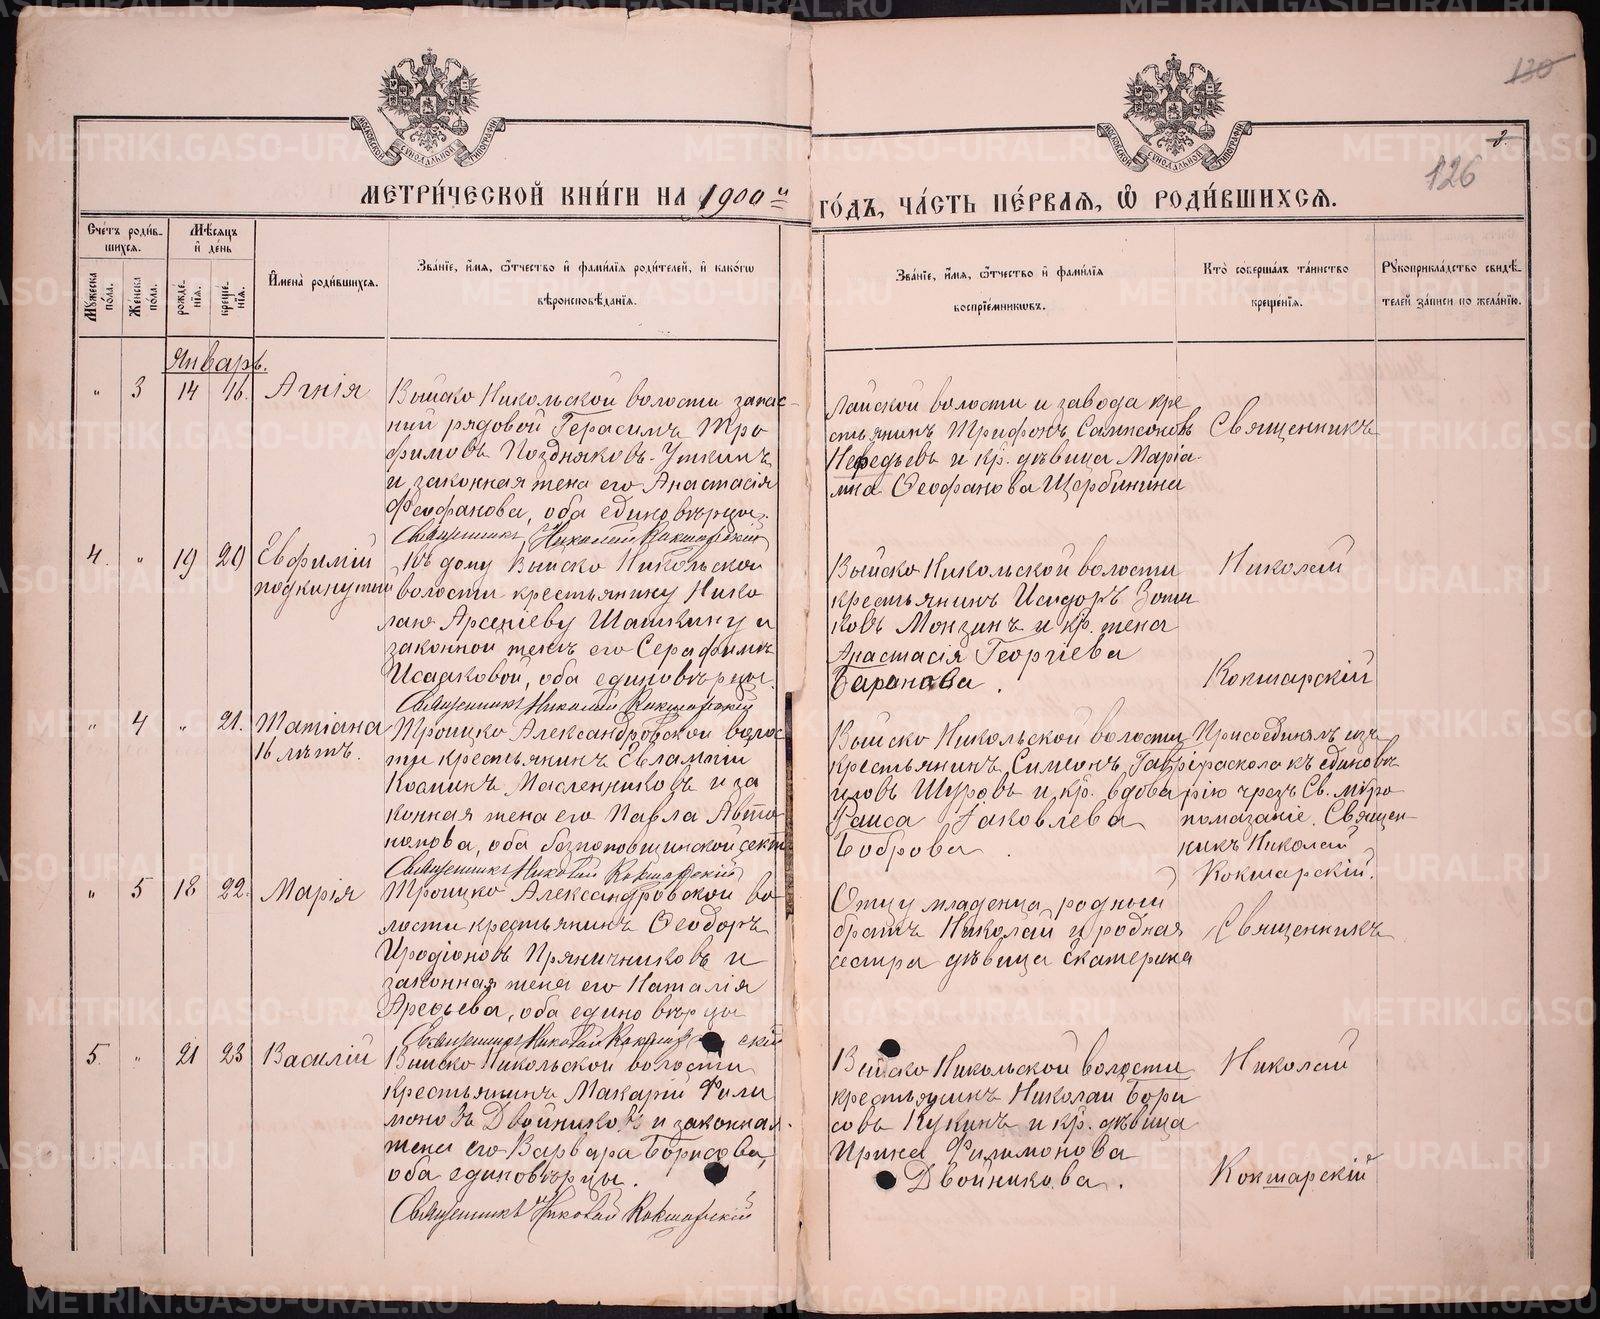 130
126
МЕТРИ́ЧЕСКОЙ КНИ́ГИ НА 1900й ГО́ДЪ, ЧА́СТЬ ПЕ́РВАЯ, Ѡ РОДИ́ВШИХСЯ.
МОСКОВСКОЙ СѴНОДАЛЬНОЙ ТИПОГРАФІИ
МОСКОВСКОЙ СѴНОДАЛЬНОЙ ТИПОГРАФІИ
Сче́тъ роди́в-
шихся.
Му́жеска
по́ла.
Же́нска
по́ла.
Мѣ́сяцъ
и҆ де́нь
рожде́-
нїя.
креще́-
нїя.
И҆мена̀ роди́вшихся.
Зва́нїе, и҆́мя, ѻ҆́тчество и҆ фами́лїя роди́телей, и҆ како́гѡ
вѣроисповѣ́данїя.
Зва́нїе, и҆́мя, ѻ҆́тчество и҆ фами́лїя
воспрїе́мникѡвъ.
Кто̀ соверша́лъ та́инство
креще́нїя.
Рꙋкоприкла́дство свидѣ́-
телей за́писи по жела́нїю.
Январь.
" 3 14 16. Агнія
Выйско Никольской волости запас-
ный рядовой Герасимъ Тро
фимовъ Поздняковъ-Уткинъ
и законная жена его Анастасія
Феофанова, оба единовѣрцы.
Священникъ Николай Кокшарскій
Лайской волости и завода кре
стьянинъ Трифонъ Сампсоновъ
Нефедьевъ и кр. дѣвица Маріа
мна Ѳеофанова Щербинина
Священникъ
4. " 19 20 Евфимій
подкинутый
къ дому Выйско Никольской
волости крестьянину Нико
лаю Арсеніеву Шашкину и
законной женѣ его Серафимѣ
Исааковой, оба единовѣрцы.
Священникъ Николай Кокшарскій
Выйско Никольской волости
крестьянинъ Исидоръ Зоти
ковъ Монзинъ и кр. жена
Анастасія Георгіева
Баранова.
Николай
Кокшарскій
" 4 " 21. Татіана
16 лѣтъ.
Троицко Александровской волос
ти крестьянинъ Евлампій
Козминъ Масленниковъ и за
конная жена его Павла Авто
номова, оба безпоповщинской секты
Священникъ Николай Кокшарскій
Выйско Никольской волости
крестьянинъ Симеонъ Гаврі
иловъ Шуровъ и кр. вдова
Раиса Іаковлева
Боброва.
Присоединялъ изъ
раскола къ единовѣ
рію чрезъ Св. мѵро
помазаніе. Священ-
никъ Николай
Кокшарскій.
" 5 18 22. Марія
Троицко Александровской во
лости крестьянинъ Ѳеодоръ
Иродіоновъ Пряничниковъ и
законная жена его Наталія
Арефьева, оба единовѣрцы
Священникъ Николай Кокшарскій
Отцу младенца родный
братъ Николай и родная
сестра дѣвица Екатерина
Священникъ
5. " 21 23 Василій
Выйско Никольской волости
крестьянинъ Макарій Фили
моновъ Двойниковъ и законная
жена его Варвара Борисова,
оба единовѣрцы.
Священникъ Николай Кокшарскій
Выйско Никольской волости
крестьянинъ Николай Бори
совъ Кукинъ и кр. дѣвица
Ирина Филимонова
Двойникова.
Николай
Кокшарскій